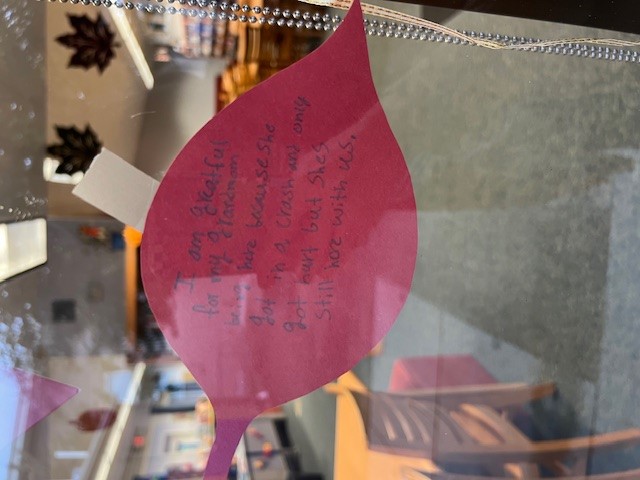 I am greatful
for my grandmom
being here because she
got in a crash and only
got hurt but shes
still here with us.